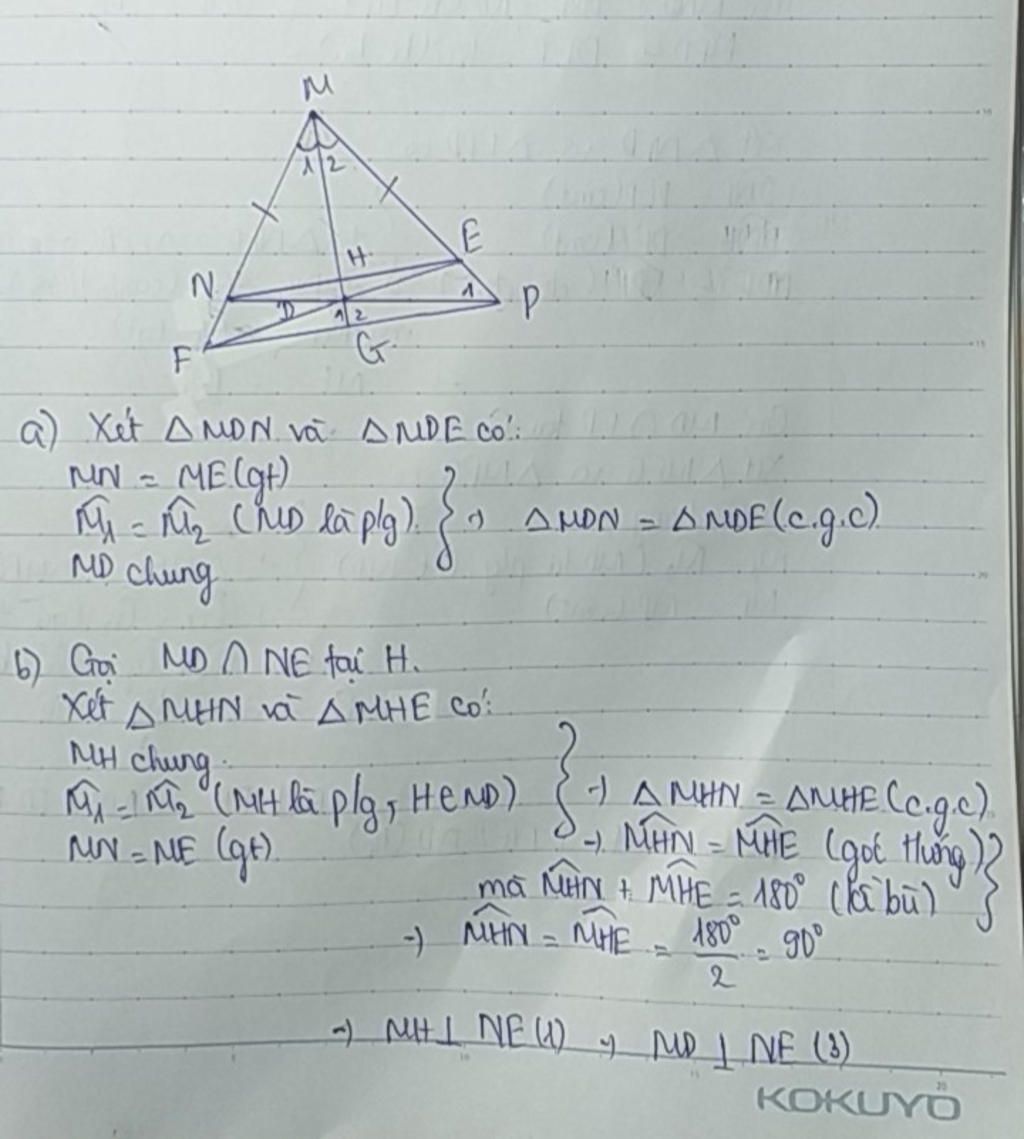 M
1 2
H
E
N
D
1 2
1
P
F
G
a) Xét △MDN và △MDE có:
MN = ME (gt)
M̂₁ = M̂₂ (MD là p/g) } → △MDN = △MDE (c.g.c)
MD chung
b) Gọi MD ∩ NE tại H.
Xét △MHN và △MHE có:
MH chung.
M̂₁ = M̂₂ (MH là p/g, H∈MD) } → △MHN = △MHE (c.g.c)
MN = NE (gt). → MHN̂ = MHÊ (góc tướng) }
mà MHN̂ + MHÊ = 180° (kề bù)
→ MHN̂ = MHÊ = 180°/2 = 90°
→ MH ⊥ NE (1) → MD ⊥ NE (3)
KOKUYO